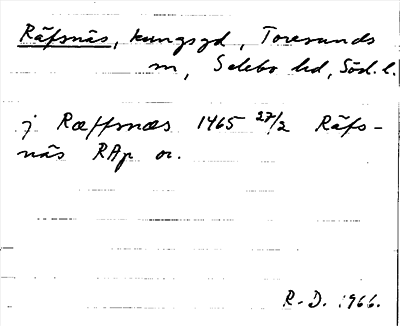 Räfsnäs, kungsgd, Toresunds
sn, Selebo hd, Söd. l.
j Ræffsnæs 1465 27/2 Räfs-
näs RAp or.
R.-D. 1966.